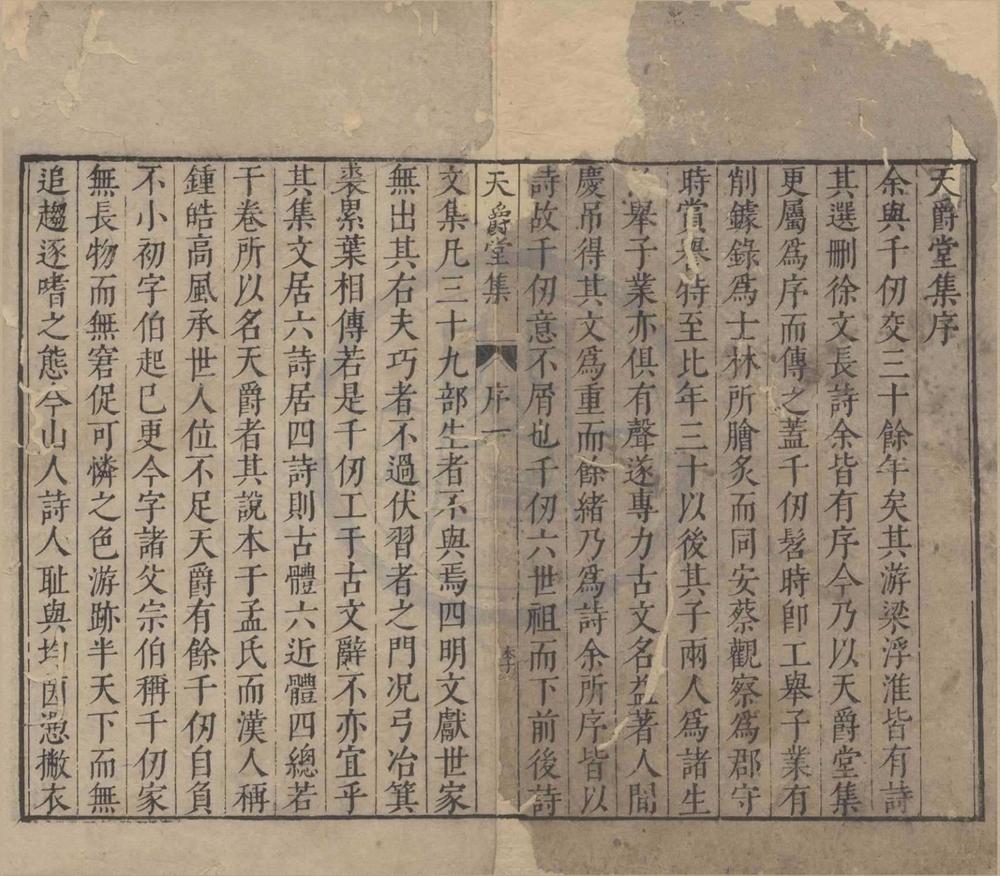 天爵堂集序
余與千仞交三十餘年矣其游梁浮淮皆有詩
其選刪徐文長詩余皆有序今乃以天爵堂集
更屬爲序而傳之蓋千仞髫時卽工舉子業有
削鐻錄爲士林所膾炙而同安蔡觀察爲郡守
時賞譽特至比年三十以後其子兩人爲諸生
舉子業亦俱有聲遂專力古文名益著人間
慶吊得其文爲重而餘緒乃爲詩余所序皆以
詩故千仞意不屑也千仞六世祖而下前後詩
天爵堂集 序 一
文集凡三十九部生者不與焉四明文獻世家
無出其右夫巧者不過伏習者之門况弓冶箕
裘累葉相傳若是千仞工于古文辭不亦宜乎
其集文居六詩居四詩則古體六近體四總若
干卷所以名天爵者其說本于孟氏而漢人稱
鍾皓高風承世人位不足天爵有餘千仞自負
不小初字伯起已更今字諸父宗伯稱千仞家
無長物而無窘促可憐之色游跡半天下而無
追趨逐嗜之態今山人詩人耻與均茵憑撇衣